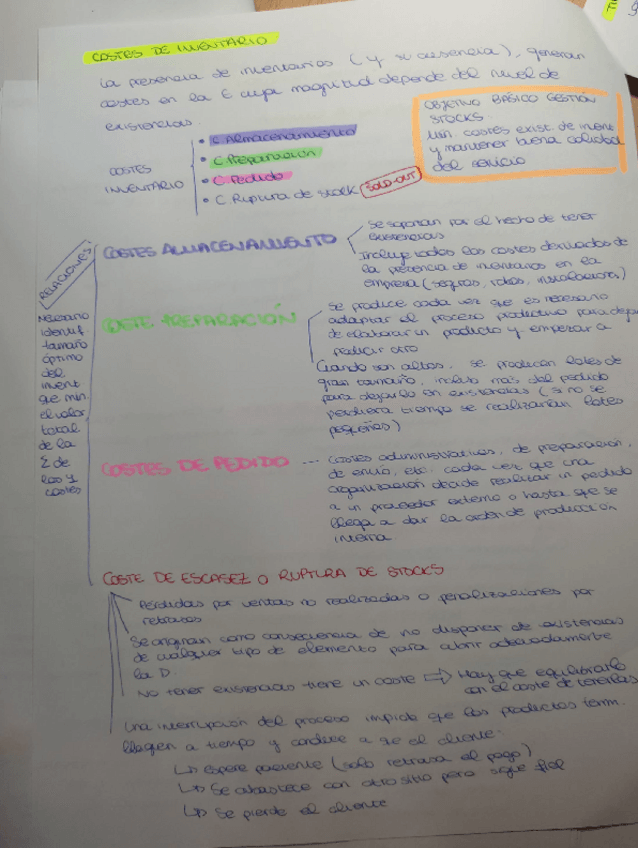 COSTES DE INVENTARIO
La presencia de inventarios (y su ausencia), generan
costes en la E cuya magnitud depende del nivel de
existencias.
OBJETIVO BÁSICO GESTIÓN
STOCKS
Min. costes exist. de invent
y mantener buena calidad
del servicio
COSTES
INVENTARIO
• C Almacenamiento
• C Preparación
• C Pedido
• C Ruptura de stock
SOLD-OUT
RELACIONES:
Necesario
identif
tamaño
óptimo
del
invent
que min.
el valor
total
de la
Σ de
los 4
costes
COSTES ALMACENAMIENTO
Se soportan por el hecho de tener
existencias
Incluye todos los costes derivados de
la presencia de inventarios en la
empresa (seguros, robos, instalaciones)
COSTE PREPARACIÓN
Se produce cada vez que es necesario
adaptar el proceso productivo para dejar
de elaborar un producto y empezar a
producir otro
Cuando son altos, se producen lotes de
gran tamaño, incluso más del pedido
para dejarlo en existencias (si no se
perdiera tiempo se realizarían lotes
pequeños)
COSTES DE PEDIDO ...
Costes administrativos, de preparación,
de envío, etc. cada vez que una
organización decide realizar un pedido
a un proveedor externo o hasta que se
llega a dar la orden de producción
interna.
COSTE DE ESCASEZ O RUPTURA DE STOCKS
Pérdidas por ventas no realizadas o penalizaciones por
retrasos
Se originan como consecuencia de no disponer de existencias
de cualquier tipo de elemento para cubrir adecuadamente
la D.
No tener existencias tiene un coste ⇨ Hay que equilibrarlo
con el coste de tenerlas
Una interrupción del proceso impide que los productos term.
lleguen a tiempo y conduce a que el cliente:
↳ Espere paciente (solo retrasa el pago)
↳ Se abastece con otro sitio pero sigue fiel
↳ Se pierde el cliente